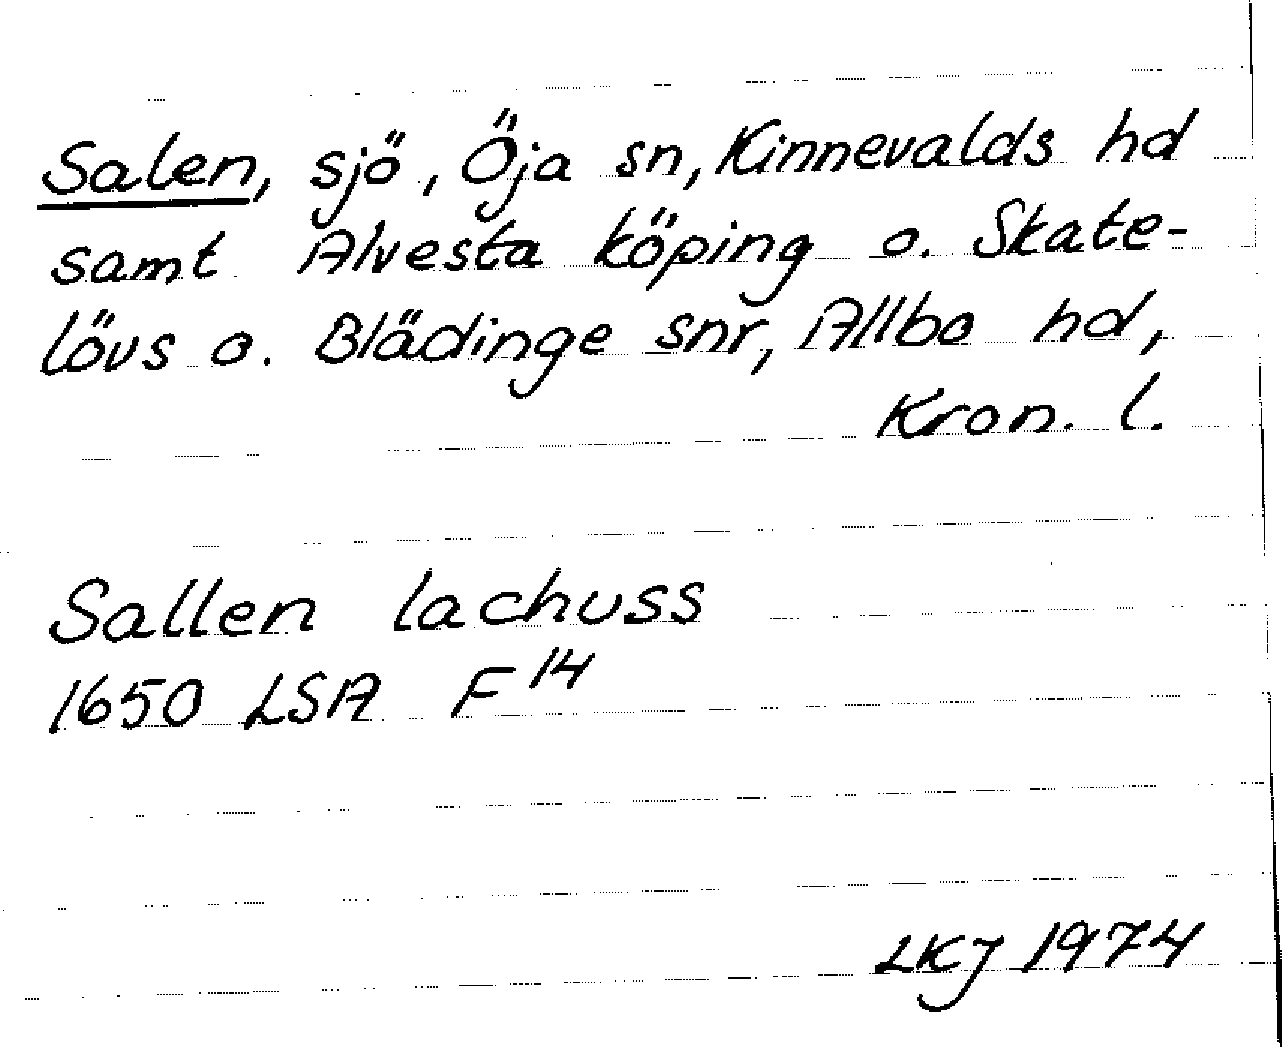 Salen, sjö, Öja sn, Kinnevalds hd
samt Alvesta köping o. Skate-
lövs o. Blädinge snr, Allbo hd,
Kron. l.
Sallen lachuss
1650 LSA F 14
LKJ 1974